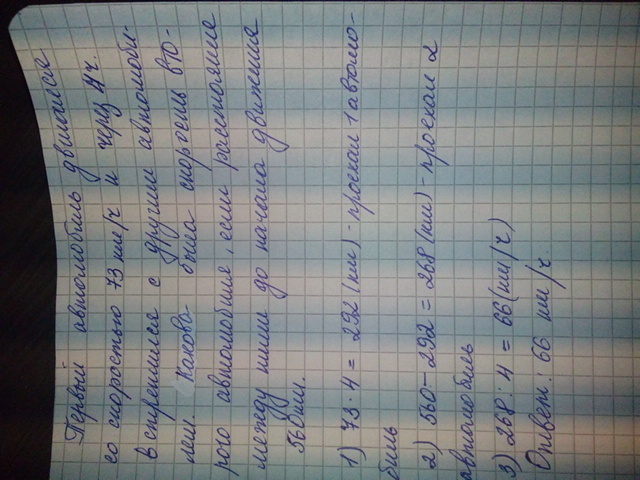 Первый автомобиль двигался
со скоростью 73 км/ч и через 4ч.
встретился с другим автомоби-
лем. Какова была скорость вто-
рого автомобиля, если расстояние
между ними до начала движения
560км.
1) 73·4 = 292 (км) - проехал 1 автомо-
биль
2) 560-292 = 268 (км) - проехал 2
автомобиль
3) 268:4 = 66(км/ч)
Ответ: 66 км/ч.